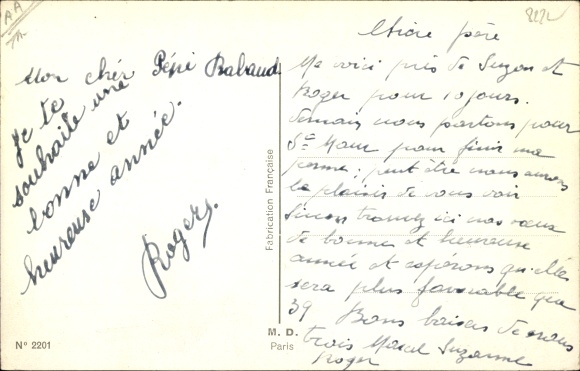 AA
2221
Mon chér Pépé Rabaud
Je te
souhaite une
bonne et
heureuse année.
Roger.
Chère père
Me voici près de Suzon et
Roger pour 10 jours.
demain nous partons pour
St Maur pour finir ma
perme; peut être nous aurons
le plaisir de vous voir
sinon trouvez ici nos vœux
de bonne et heureuse
année et espérons qu'elle
sera plus favorable que
39 Bons baisers de nous
trois Marcel Suzanne
Roger
Fabrication Française
M. D.
Paris
N° 2201